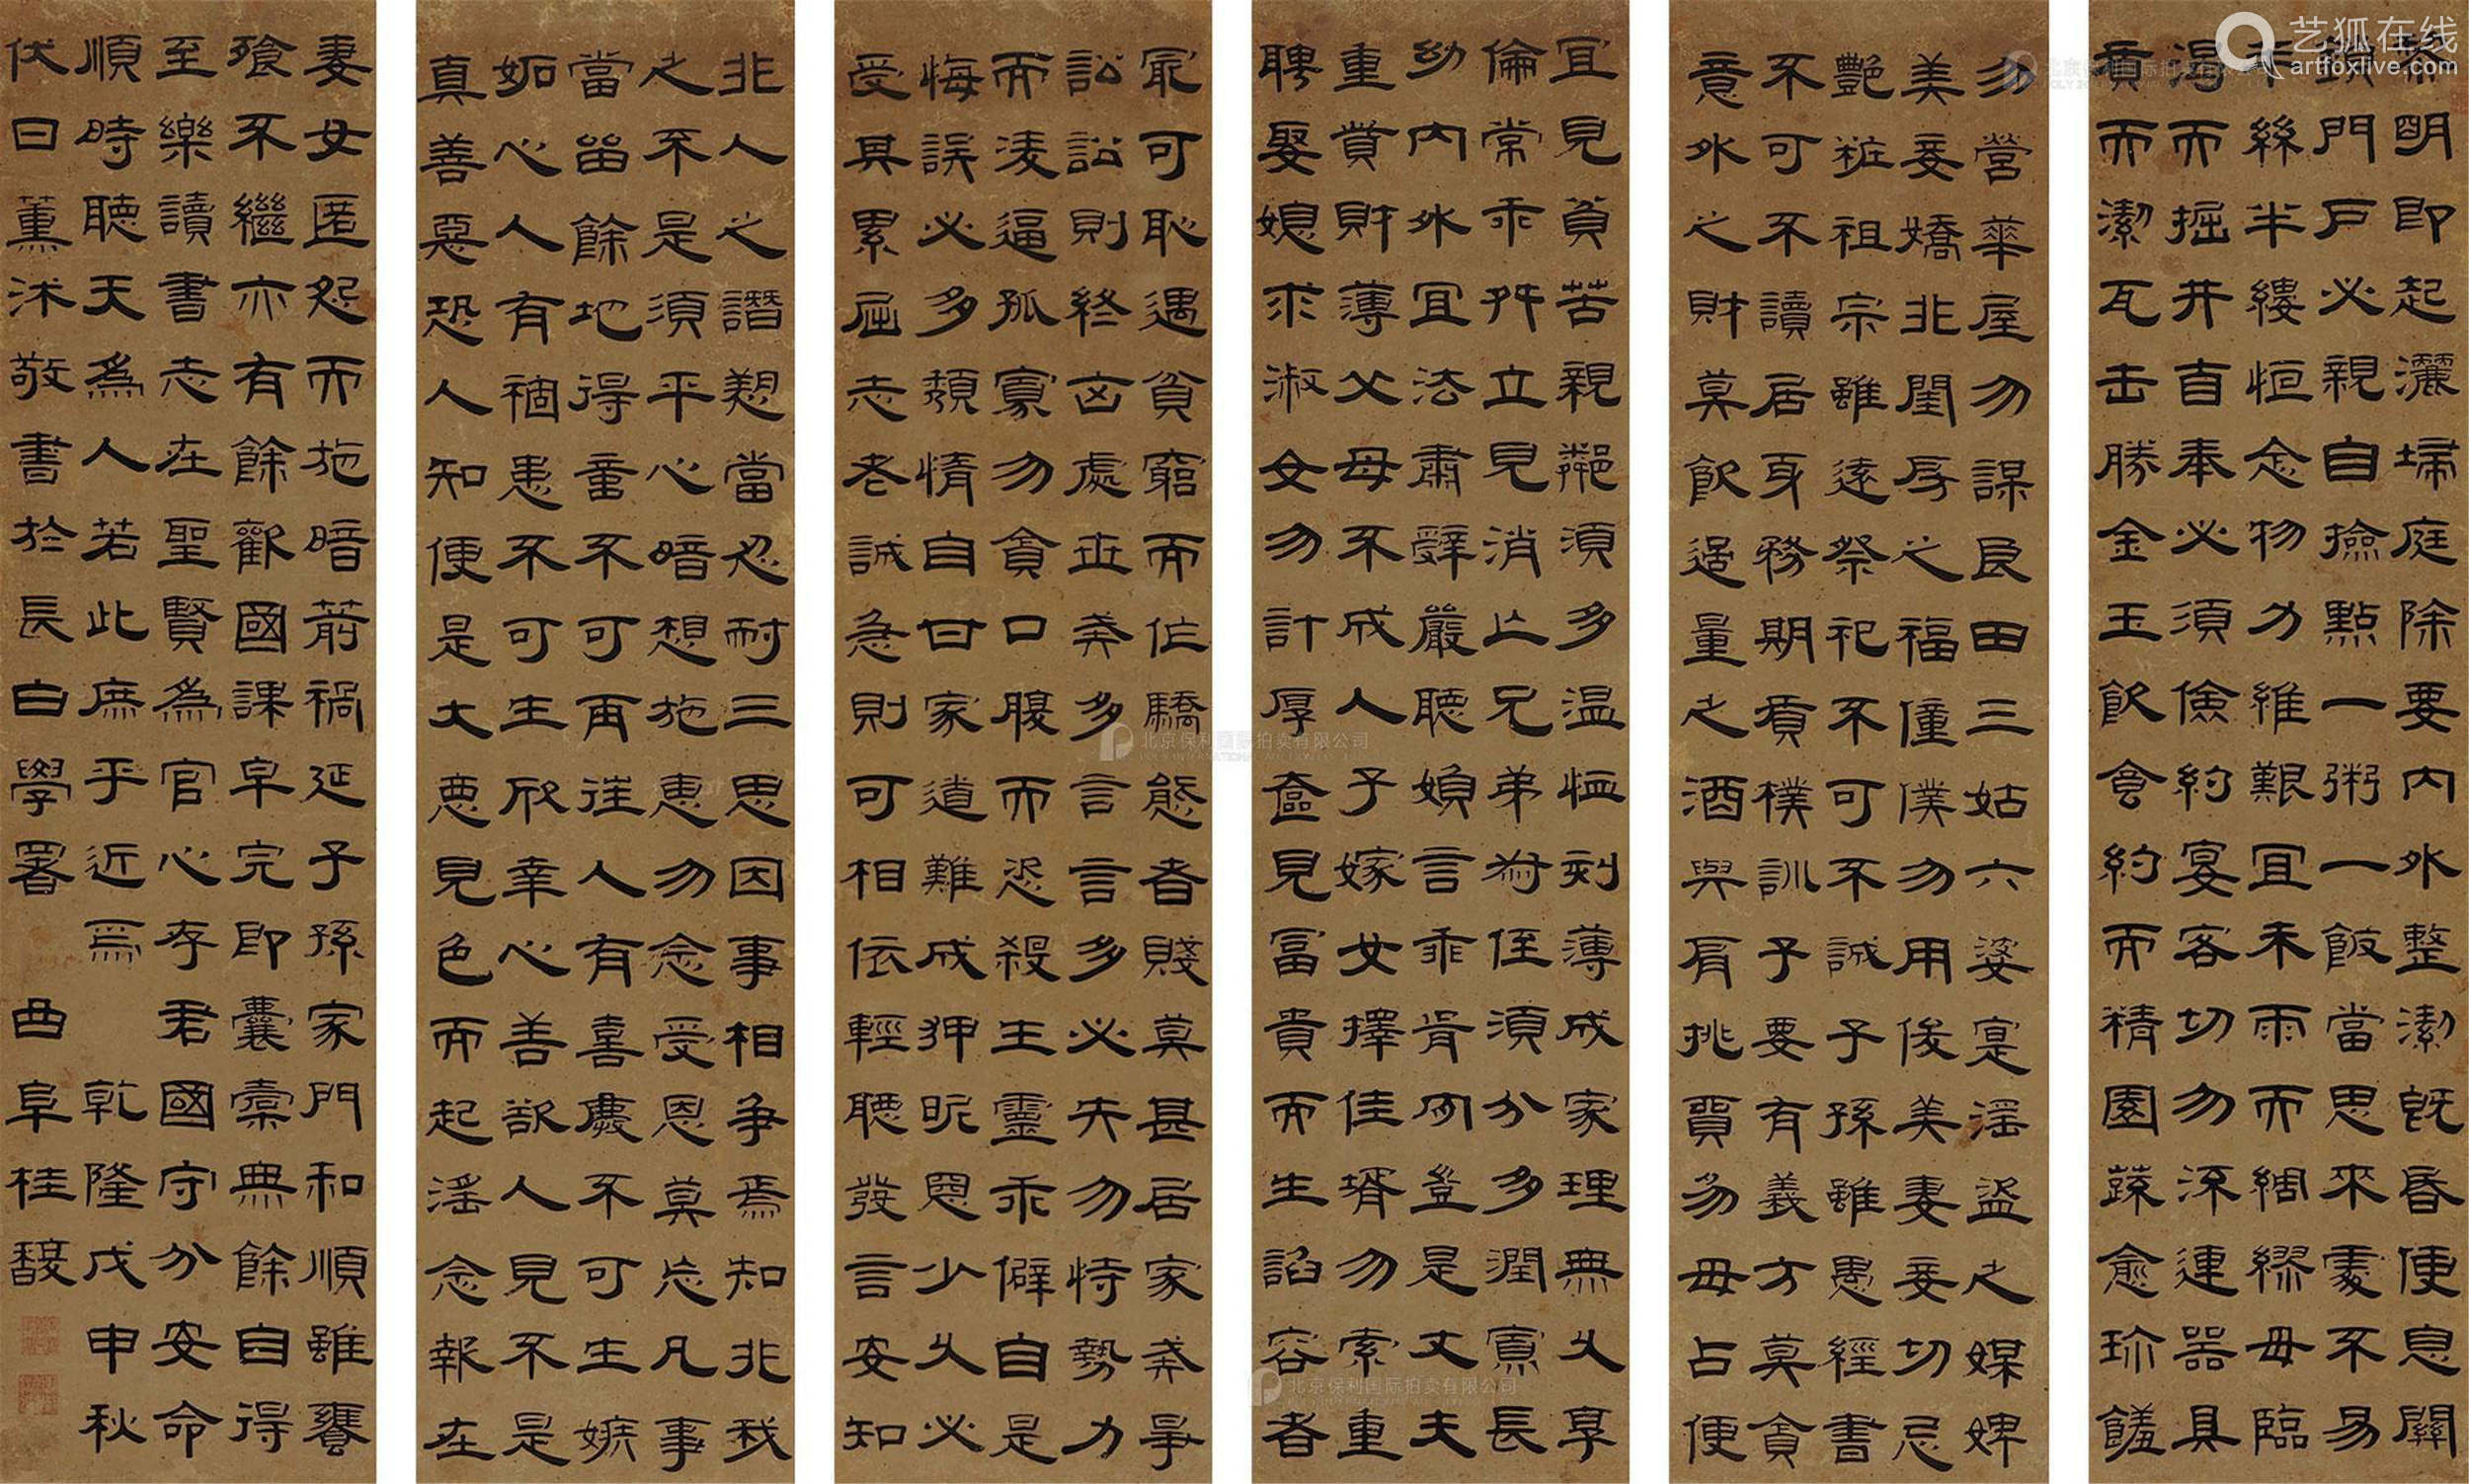 黎明即起灑埽庭除要內外整潔既昏便息關
鎖門戶必親自撿點一粥一飯當思來處不易
半絲半縷恒念物力維艱宜未雨而綢繆毋臨
渴而掘井自奉必須儉約宴客切勿流連器具
質而潔瓦缶勝金玉飲食約而精園蔬愈珍饈
勿營華屋勿謀良田三姑六婆寔淫盜之媒婢
美妾嬌非閨房之福僮僕勿用俊美妻妾切忌
艷粧祖宗雖遠祭祀不可不誠子孫雖愚經書
不可不讀居身務期質樸訓子要有義方莫貪
意外之財莫飲過量之酒與肩挑貿易毋占便
宜見貧苦親鄰須多温恤刻薄成家理無久享
倫常乖舛立見消亡兄弟叔侄須分多潤寡長
幼內外宜法肅辭嚴聽婦言乖骨肉豈是丈夫
重貲財薄父母不成人子嫁女擇佳壻勿索重
聘娶媳求淑女勿計厚奩見富貴而生諂容者
最可恥遇貧窮而作驕態者賤莫甚居家戒爭
訟訟則終凶處世戒多言言多必失勿恃勢力
而淩逼孤寡勿貪口腹而恣殺生靈乖僻自是
悔誤必多頹惰自甘家道難成狎昵惡少久必
受其累屈志老誠急則可相依輕聽發言安知
非人之譖愬當忍耐三思因事相爭焉知非我
之不是須平心暗想施惠勿念受恩莫忘凡事
當留餘地得意不可再往人有喜慶不可生嫉
妬心人有禍患不可生欣幸心善欲人見不是
真善惡恐人知便是大惡見色而起淫念報在
妻女匿怨而施暗箭禍延子孫家門和順雖饔
飱不繼亦有餘歡國課早完即囊橐無餘自得
至樂讀書志在聖賢為官心存君國守分安命
順時聽天為人若此庶乎近焉 乾隆戊申秋
伏日薰沐敬書於長白學署 曲阜桂馥
艺狐在线
artfoxlive.com
北京保利国际拍卖有限公司
北京保利国际拍卖有限公司